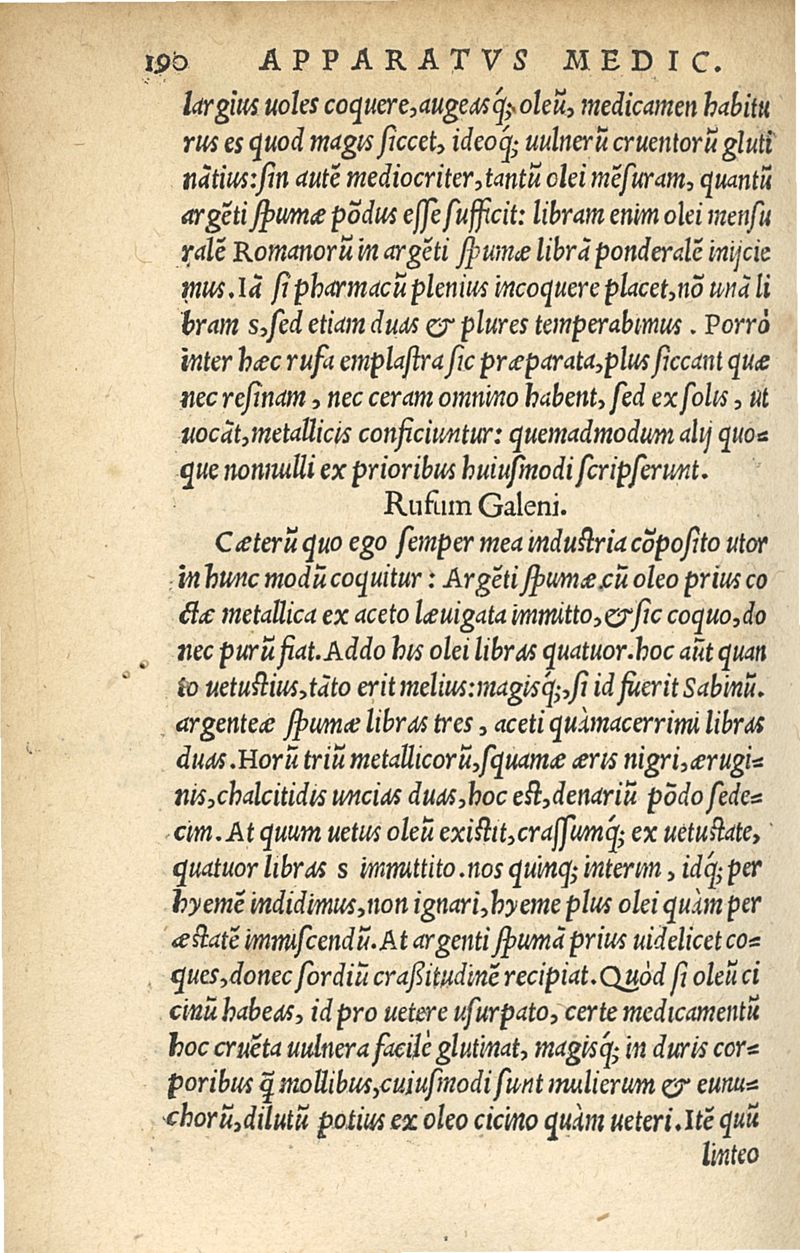 190 APPARATVS MEDIC.
largius uoles coquere, augeasq́; oleũ, medicamen habitu
rus es quod magis siccet, ideoq́; uulnerũ cruentorũ gluti
nãtius: sin autẽ mediocriter, tantũ olei mẽsuram, quantũ
argẽti spumæ põdus esse sufficit: libram enim olei mensu
ralẽ Romanorũ in argẽti spumæ librã ponderalẽ inijcie
mus. Iã si pharmacũ plenius incoquere placet, nõ unã li
bram s, sed etiam duas & plures temperabimus. Porrò
inter hæc rufa emplastra sic præparata, plus siccant quæ
nec resinam, nec ceram omnino habent, sed ex solis, ut
uocãt, metallicis conficiuntur: quemadmodum alij quo=
que nonnulli ex prioribus huiusmodi scripserunt.
Rufum Galeni.
Cæterũ quo ego semper mea industria cõposito utor
in hunc modũ coquitur: Argẽti spumæ cũ oleo prius co
ctæ metallica ex aceto læuigata immitto, & sic coquo, do
nec purũ fiat. Addo his olei libras quatuor. hoc aũt quan
to uetustius, tãto erit melius: magisq́;, si id fuerit Sabinũ.
argenteæ spumæ libras tres, aceti quàm acerrimi libras
duas. Horũ triũ metallicorũ, squamæ æris nigri, ærugi=
nis, chalcitidis uncias duas, hoc est, denariũ põdo sede=
cim. At quum uetus oleũ existit, crassumq́; ex uetustate,
quatuor libras s immittito. nos quinq; interim, idq́; per
hyemẽ indidimus, non ignari, hyeme plus olei quàm per
æstatẽ immiscendũ. At argenti spumã prius uidelicet co=
ques, donec sordiũ craßitudinẽ recipiat. Quòd si oleũ ci
cinũ habeas, id pro uetere usurpato, certe medicamentũ
hoc cruẽta uulnera facilè glutinat, magisq́; in duris cor=
poribus q̃ mollibus, cuiusmodi sunt mulierum & eunu=
chorũ, dilutũ potius ex oleo cicino quàm ueteri. Itẽ quũ
linteo